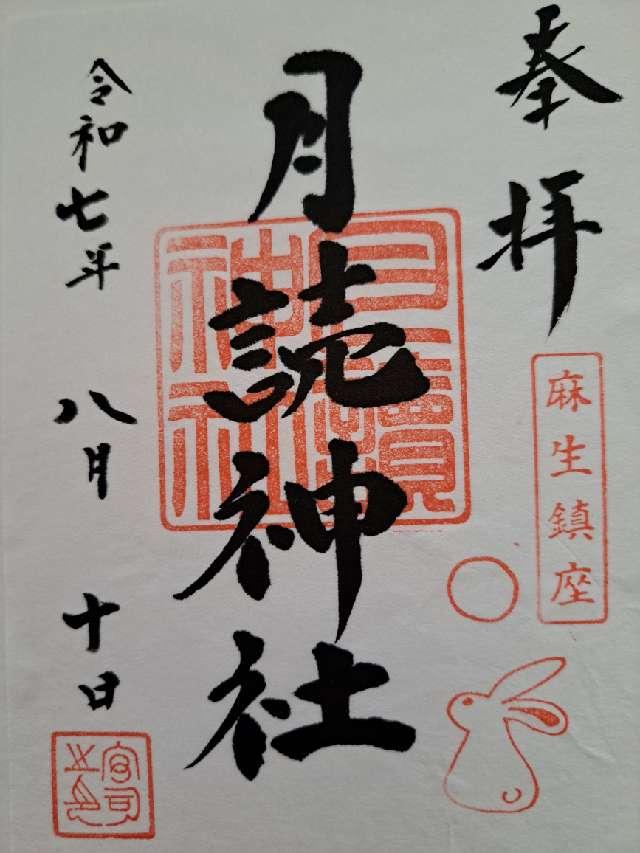 奉拝
麻生鎮座
月読神社
月讀神社
令和七年 八月 十日
宮司之印